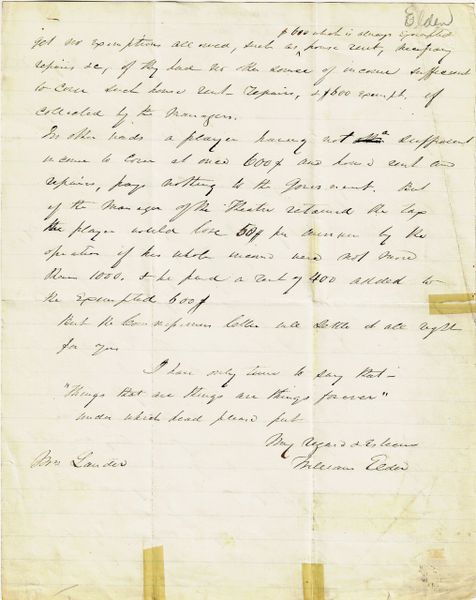 Elder
$600 which is always exempted
get no exemptions allowed, such as house rent, necessary
repairs &c, if they had no other source of income sufficient
to cover such house rent - repairs, & $600 exempt, if
collected by the Managers.
In other words a player having not a sufficient
income to cover at once 600$ and house rent and
repairs, pays nothing to the Government. But
if the Manager of the Theatre retained the tax
the player would lose 50$ per annum by the
operation if his whole income were not more
than 1000. & he paid a rent of 400 added to
the exempted 600$
But the Commissioners letter will settle it all right
for you
I have only time to say that -
"Things that are things are things forever"
under which head please put
My regard & esteem
William Elder
Mrs Lander